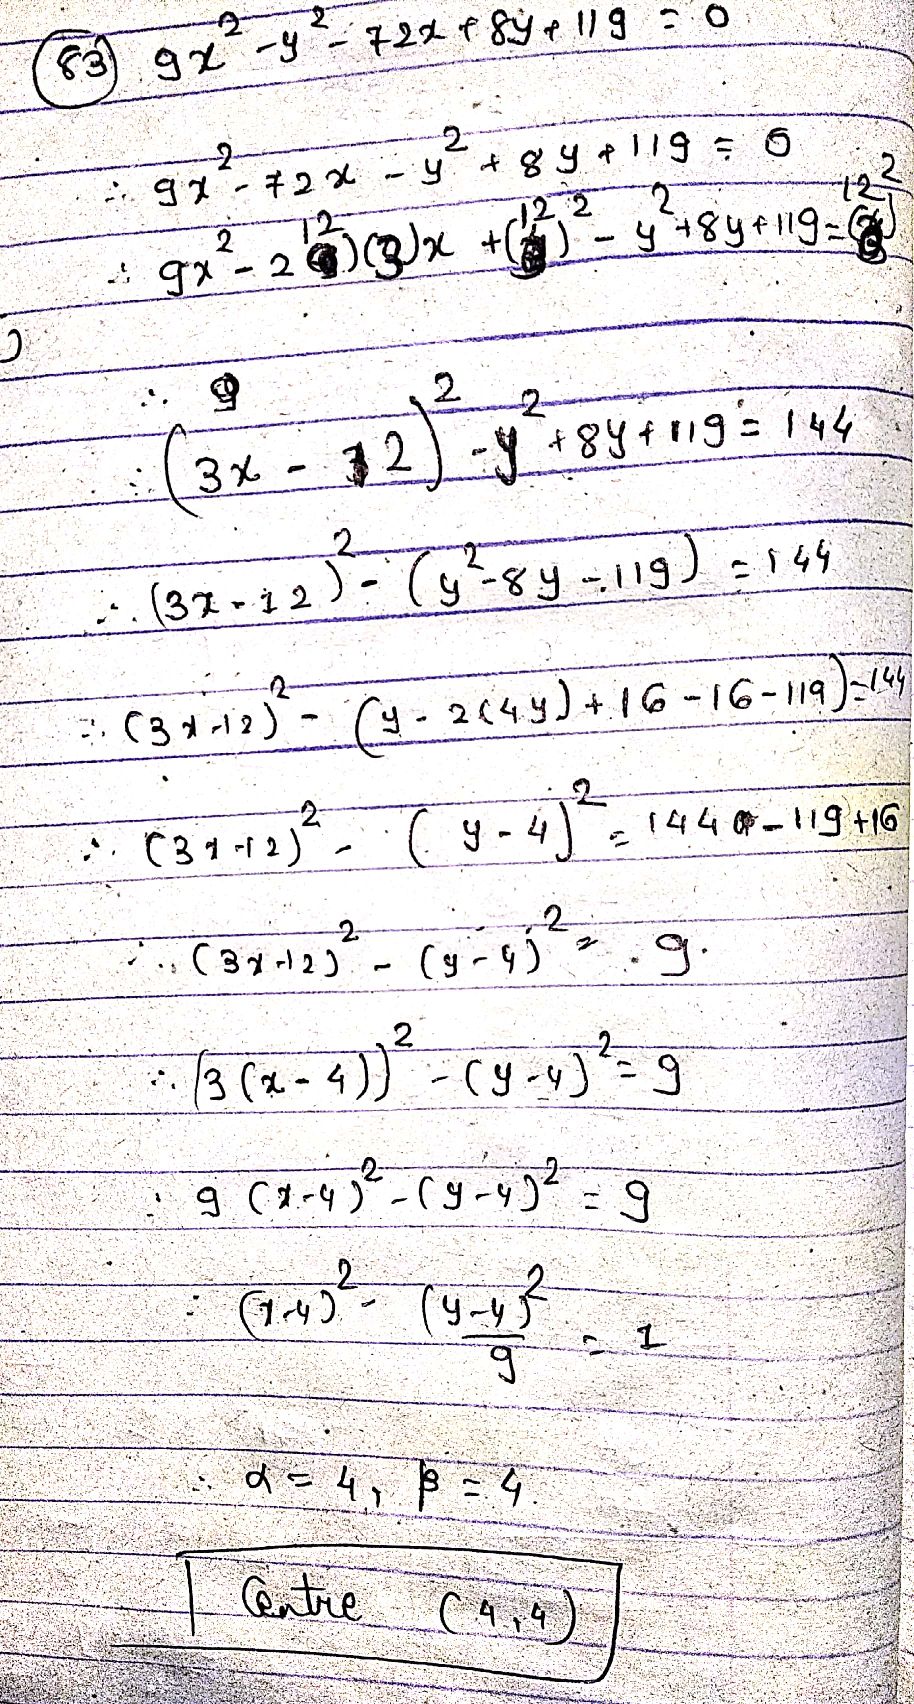 83) 9x² - y² - 72x + 8y + 119 = 0
∴ 9x² - 72x - y² + 8y + 119 = 0
∴ 9x² - 2(12)(3)x + (12)² - y² + 8y + 119 = (12)²
∴ 9
∴ (3x - 12)² - y² + 8y + 119 = 144
∴ (3x - 12)² - (y² - 8y - 119) = 144
∴ (3x - 12)² - (y - 2(4y) + 16 - 16 - 119) = 144
∴ (3x - 12)² - (y - 4)² = 144 - 119 + 16
∴ (3x - 12)² - (y - 4)² = 9.
∴ (3(x - 4))² - (y - 4)² = 9
∴ 9 (x - 4)² - (y - 4)² = 9
∴ (x - 4)² - (y - 4)²/9 = 1
∴ α = 4, β = 4.
Centre (4, 4)